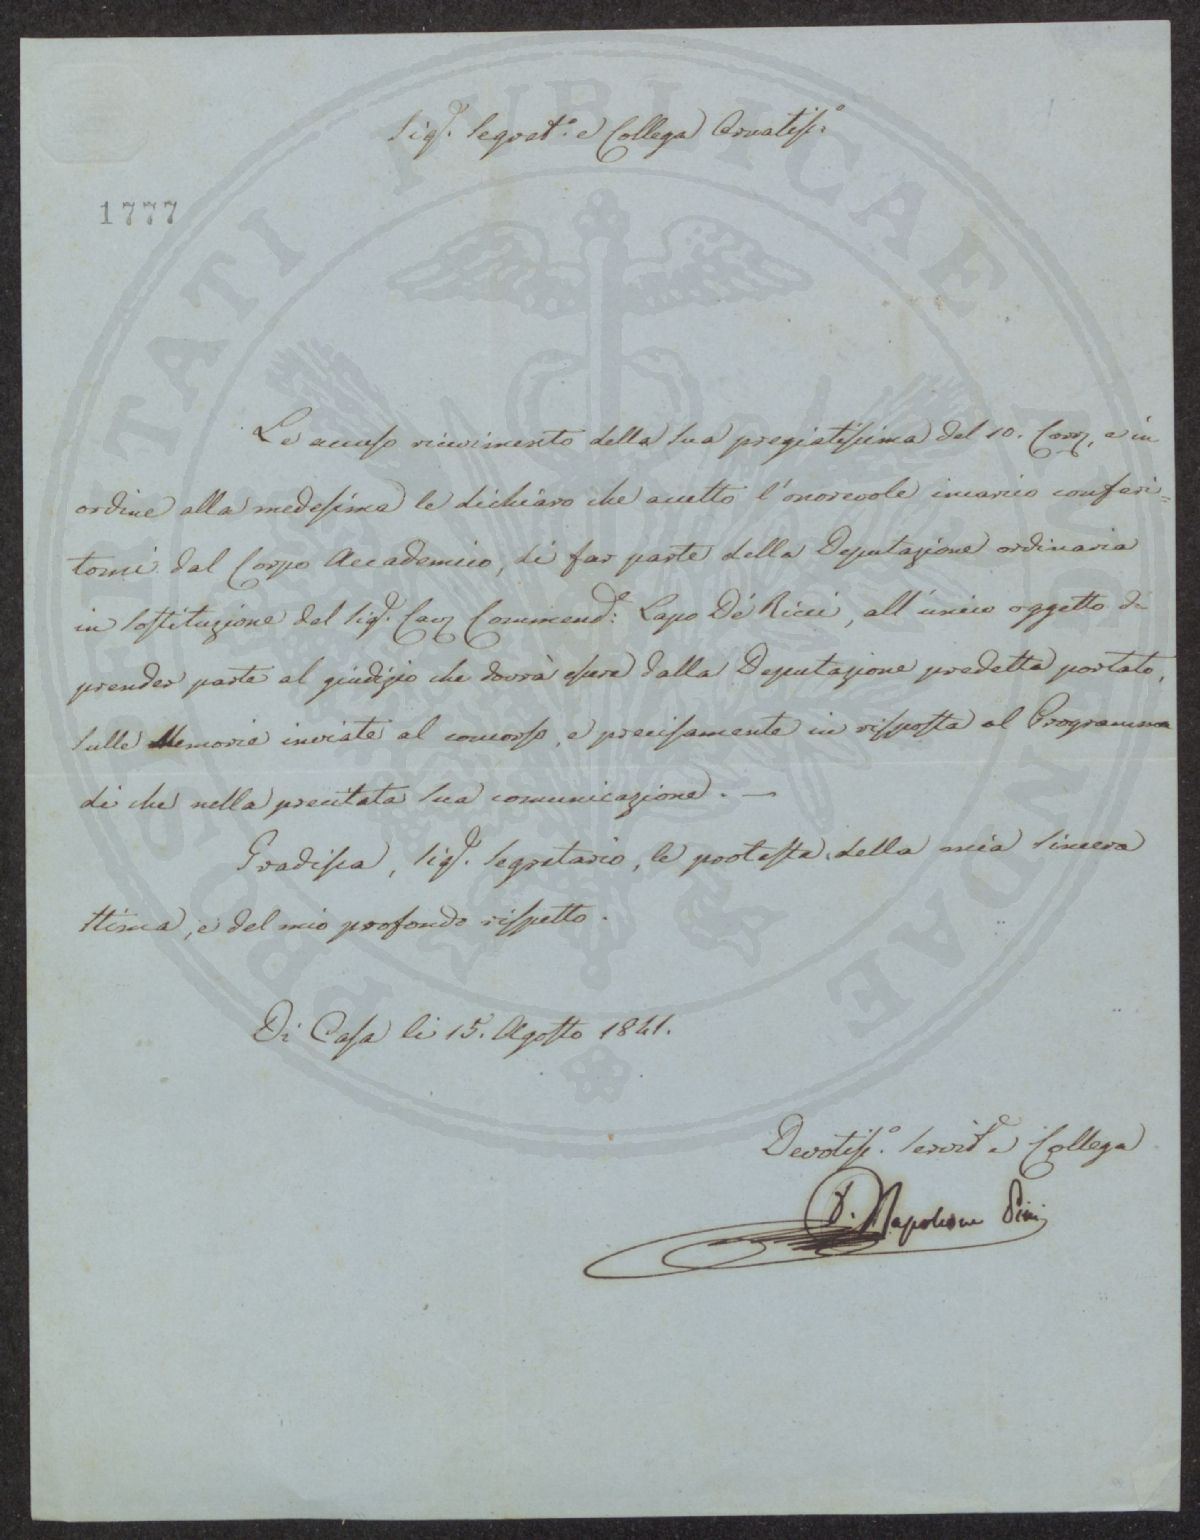 Sigr. Segret.o e Collega Ornatiss.o
1777
Le accuso ricevimento della Sua pregiatissima del 10. Corr., e in
ordine alla medesima le dichiaro che accetto l'onorevole incarico conferi=
tomi dal Corpo Accademico, di far parte della Deputazione ordinaria
in Sostituzione del Sigr. Cav. Commend.e: Lapo De' Ricci, all'unico oggetto di
prender parte al giudizio che dovrà essere dalla Deputazione predetta portato,
sulle Memorie inviate al concorso, e precisamente in risposta al Programma
di che nella precitata Sua comunicazione. —
Gradisca, Sigr. Segretario, le proteste della mia Sincera
stima, e del mio profondo rispetto.
Di Casa li 15. Agosto 1841.
Devotiss.o Servit.e e Collega
D. Napoleone Pini
PROSPERITATI PUBLICAE AUGENDAE